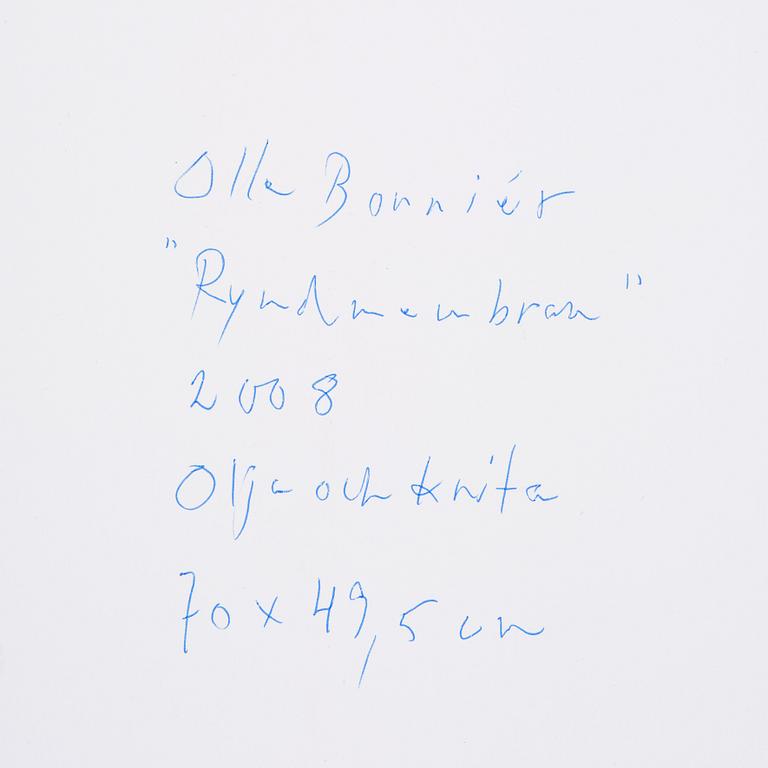 Olle Bonniér
"Rymdmembran"
2008
Olja och krita
70 x 49,5 cm